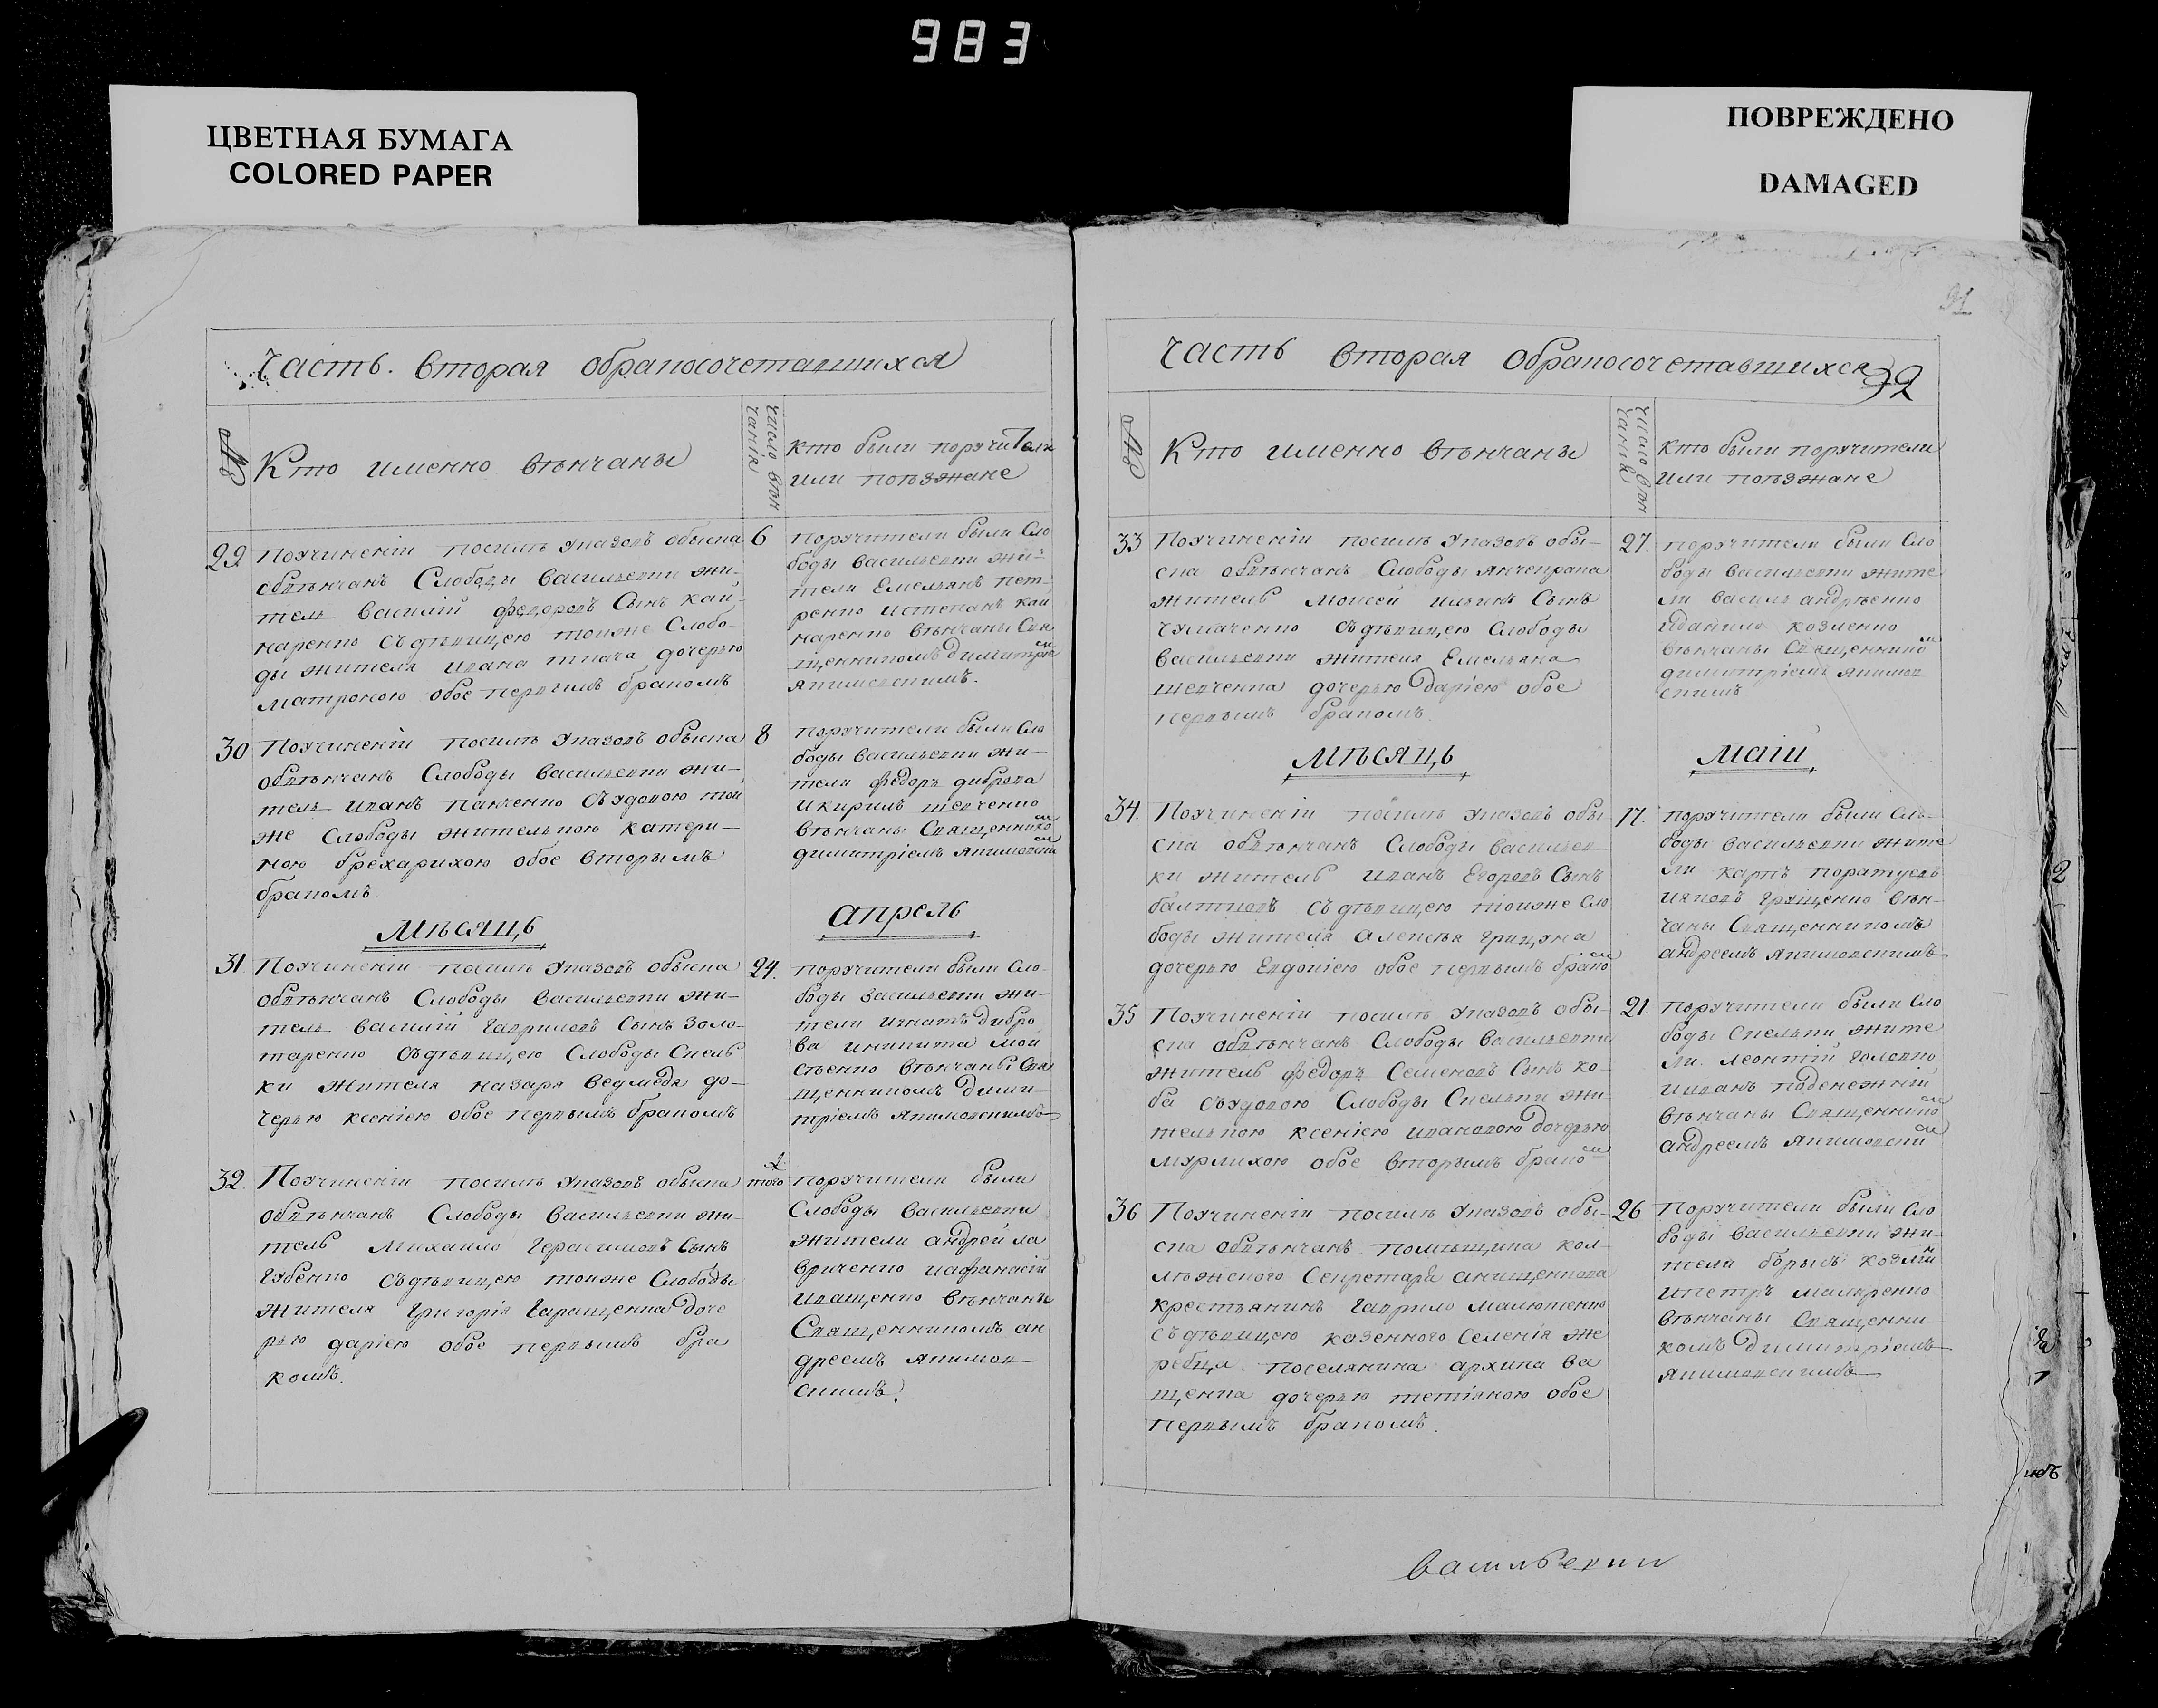 983
ЦВЕТНАЯ БУМАГА
COLORED PAPER
ПОВРЕЖДЕНО
DAMAGED
Часть вторая обракосочетавшихся
№
Кто именно вѣнчаны
число вѣн
чанія
кто были поручители
или поѣзжане
29
Поучиненіи посилѣ указовъ обыска
обвѣнчанъ Слободы васильевки жи-
тель василій федоровъ Сынъ кай-
наренко съдѣвицею тояже Слобо-
ды жителя ивана ткача дочерью
матроною обое первымъ бракомъ
6
поручители были Сло
боды васильевки жи-
тели Емельянъ пет-
ренко истепанъ кай
наренко вѣнчаны Свя
щенникомъ димитріем
якимовскимъ.
30
Поучиненіи посилѣ указовъ обыска
обвѣнчанъ Слободы васильевки жи-
тель иванъ панченко съудовою той
же Слободы жителькою катери-
ною брехарихою обое вторымъ
бракомъ.
8
поручители были Сло
боды васильевки жи-
тели федоръ диброва
икирилъ шевченко
вѣнчаны Священником
димитріемъ якимовским
мѣсяцъ
апрель
31
Поучиненіи посилѣ указовъ обыска
обвѣнчанъ Слободы васильевки жи-
тель василій гавриловъ Сынъ золо-
таренко съдѣвицею Слободы Спель
ки жителя назаря ведмедя до-
черью ксеніею обое первымъ бракомъ
24.
поручители были Сло-
боды васильевки жи-
тели игнатъ дибро
ва иникита мои
сѣенко вѣнчаны Свя
щенникомъ дими-
тріемъ якимовскимъ
32.
Поучиненіи посилѣ указовъ обыска
обвѣнчанъ Слободы васильевки жи-
тель михаило герасимовъ Сынъ
губенко съдѣвицею тояже Слободы
жителя григорія геращенка доче
рью даріею обое первымъ бра
комъ.
того
поручители были
Слободы васильевки
жители андрей ла
вриченко иафанасій
иващенко вѣнчаны
Священникомъ ан
дреемъ якимов-
скимъ.
Часть вторая обракосочетавшихся
92
№
Кто именно вѣнчаны
число вѣн
чанія
Кто были поручители
или поѣзжане
33
Поучиненіи посилѣ указовъ обы-
ска обвѣнчанъ Слободы янчекрака
житель моисей ильинъ Сынъ
чумаченко съдѣвицею Слободы
васильевки жителя Емельяна
шевченка дочерью даріею обое
первымъ бракомъ.
27.
поручители были Сло
боды васильевки жите
ли василь андрѣенко
иданило козменко
вѣнчаны Священником
димитріемъ якимов
скимъ
мѣсяцъ
маій
34.
Поучиненіи посилѣ указовъ обы
ска обвѣнчанъ Слободы васильев-
ки житель иванъ Егоровъ Сынъ
балтновъ съдѣвицею тояже Сло
боды жителя алексѣя грицука
дочерью Евдокіею обое первымъ браком
17.
поручители были Сло-
боды васильевки жите
ли карпъ
ияковъ грущенко вѣн-
чаны Священникомъ
андреемъ якимовскимъ
35
Поучиненіи посилѣ указовъ обы-
ска обвѣнчанъ Слободы васильевки
житель федоръ Семеновъ Сынъ ко-
ба съудовою Слободы Спельки жи-
телькою ксеніею ивановою дочерью
мурлихою обое вторымъ браком
21.
поручители были Сло
боды Спельки жите
ли леонтій головко
ииванъ поденежній
вѣнчаны Священником
андреемъ якимовским
36
Поучиненіи посилѣ указовъ обы-
ска обвѣнчанъ помѣщика кол-
лѣжского Секретаря анищенкова
крестьянинъ гаврило малютенко
съдѣвицею казенного Селенія же
ребца поселянина архипа ва
щенка дочерью тетіяною обое
первымъ бракомъ.
26
Поручители были Сло
боды васильевки жи-
тели борысъ козлій
ипетръ маляренко
вѣнчаны Священни-
комъ димитріемъ
якимовскимъ
васильевки